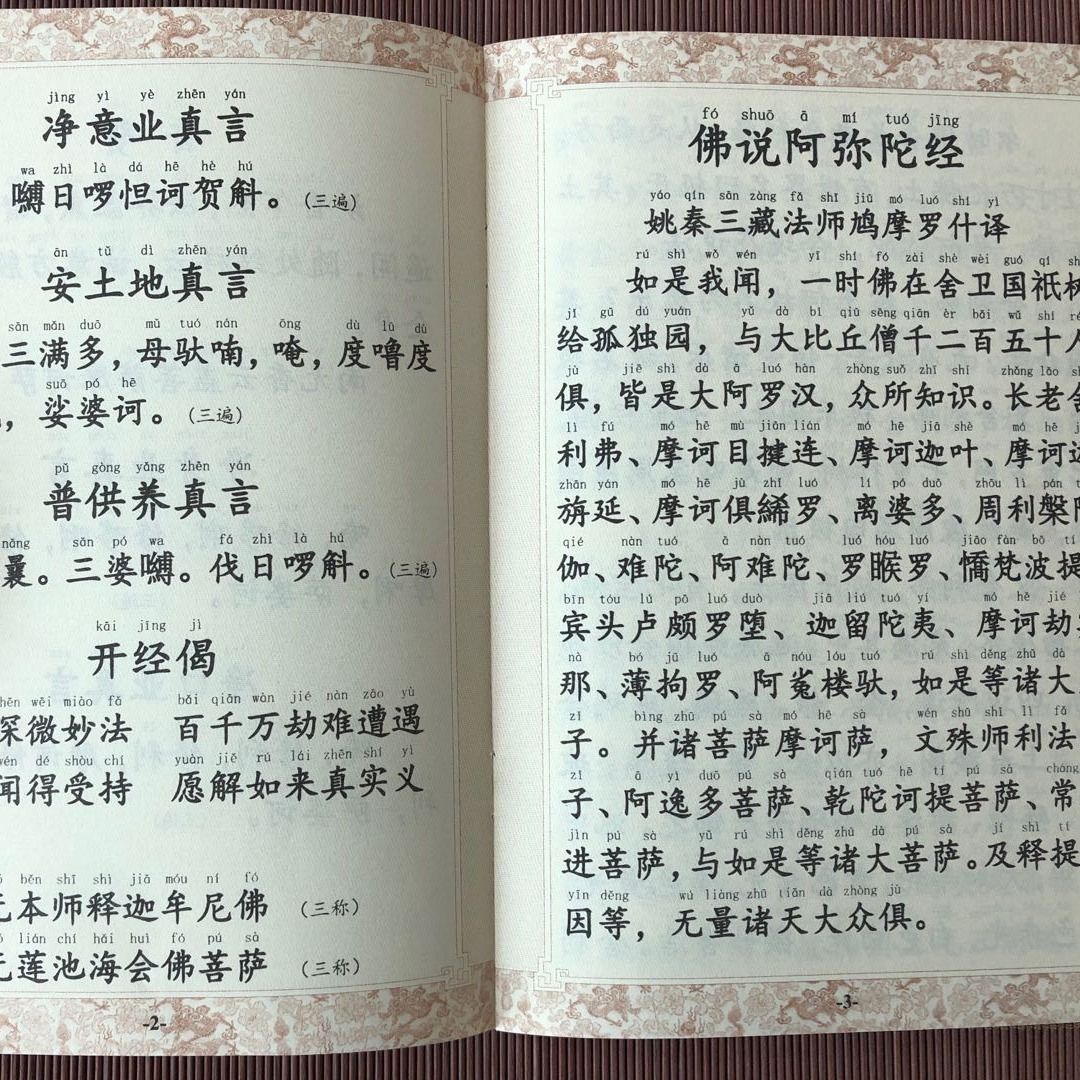 jìng yì yè zhēn yán
净意业真言
wa zhì là dá hē hè hú
嚩日啰怛诃贺斛。(三遍)
ān tǔ dì zhēn yán
安土地真言
sān mǎn duō mǔ tuó nán ōng dù lǔ dù
三满多,母驮喃,唵,度噜度
suō pó hē
,娑婆诃。(三遍)
pǔ gòng yǎng zhēn yán
普供养真言
nǎng sān pó wa fá zhì là hú
曩。三婆嚩。伐日啰斛。(三遍)
kāi jīng jì
开经偈
wēi miào fǎ bǎi qiān wàn jié nàn zāo yù
深微妙法 百千万劫难遭遇
wén dé shòu chí yuàn jiě rú lái zhēn shí yì
闻得受持 愿解如来真实义
běn shī shì jiā móu ní fó
本师释迦牟尼佛 (三称)
lián chí hǎi huì fó pú sà
莲池海会佛菩萨 (三称)
-2-
fó shuō ā mí tuó jīng
佛说阿弥陀经
yáo qín sān zàng fǎ shī jiū mó luó shí yì
姚秦三藏法师鸠摩罗什译
rú shì wǒ wén yī shí fó zài shè wèi guó qí
如是我闻, 一时佛在舍卫国祇树
jǐ gū dú yuán yǔ dà bǐ qiū sēng qiān èr bǎi wǔ shí
给孤独园, 与大比丘僧千二百五十人
jù jiē shì dà ā luó hàn zhòng suǒ zhī shí zhǎng lǎo
俱,皆是大阿罗汉,众所知识。长老舍
lì fú mó hē mù jiān lián mó hē jiā shè mó hē
利弗、摩诃目揵连、摩诃迦叶、摩诃迦
zhān yán mó hē jù chī luó lí pó duō zhōu lì pán
旃延、摩诃俱絺罗、离婆多、周利槃陀
qié nàn tuó ā nàn tuó luó hóu luó jiāo fàn bō tí
伽、难陀、阿难陀、罗睺罗、憍梵波提
bīn tóu lú pō luó duò jiā liú tuó yí mó hē jié
宾头卢颇罗堕、迦留陀夷、摩诃劫宾
nà bó jū luó ā nóu lóu tuó rú shì děng zhū dà
那、薄拘罗、阿㝹楼驮,如是等诸大
zǐ bìng zhū pú sà mó hē sà wén shū shī lì fǎ
子。并诸菩萨摩诃萨, 文殊师利法
zǐ ā yì duō pú sà qián tuó hē tí pú sà cháng
子、阿逸多菩萨、乾陀诃提菩萨、常
jìn pú sà yǔ rú shì děng zhū dà pú sà jí shì tí
进菩萨,与如是等诸大菩萨。及释提
yīn děng wú liàng zhū tiān dà zhòng jù
因等, 无量诸天大众俱。
-3-